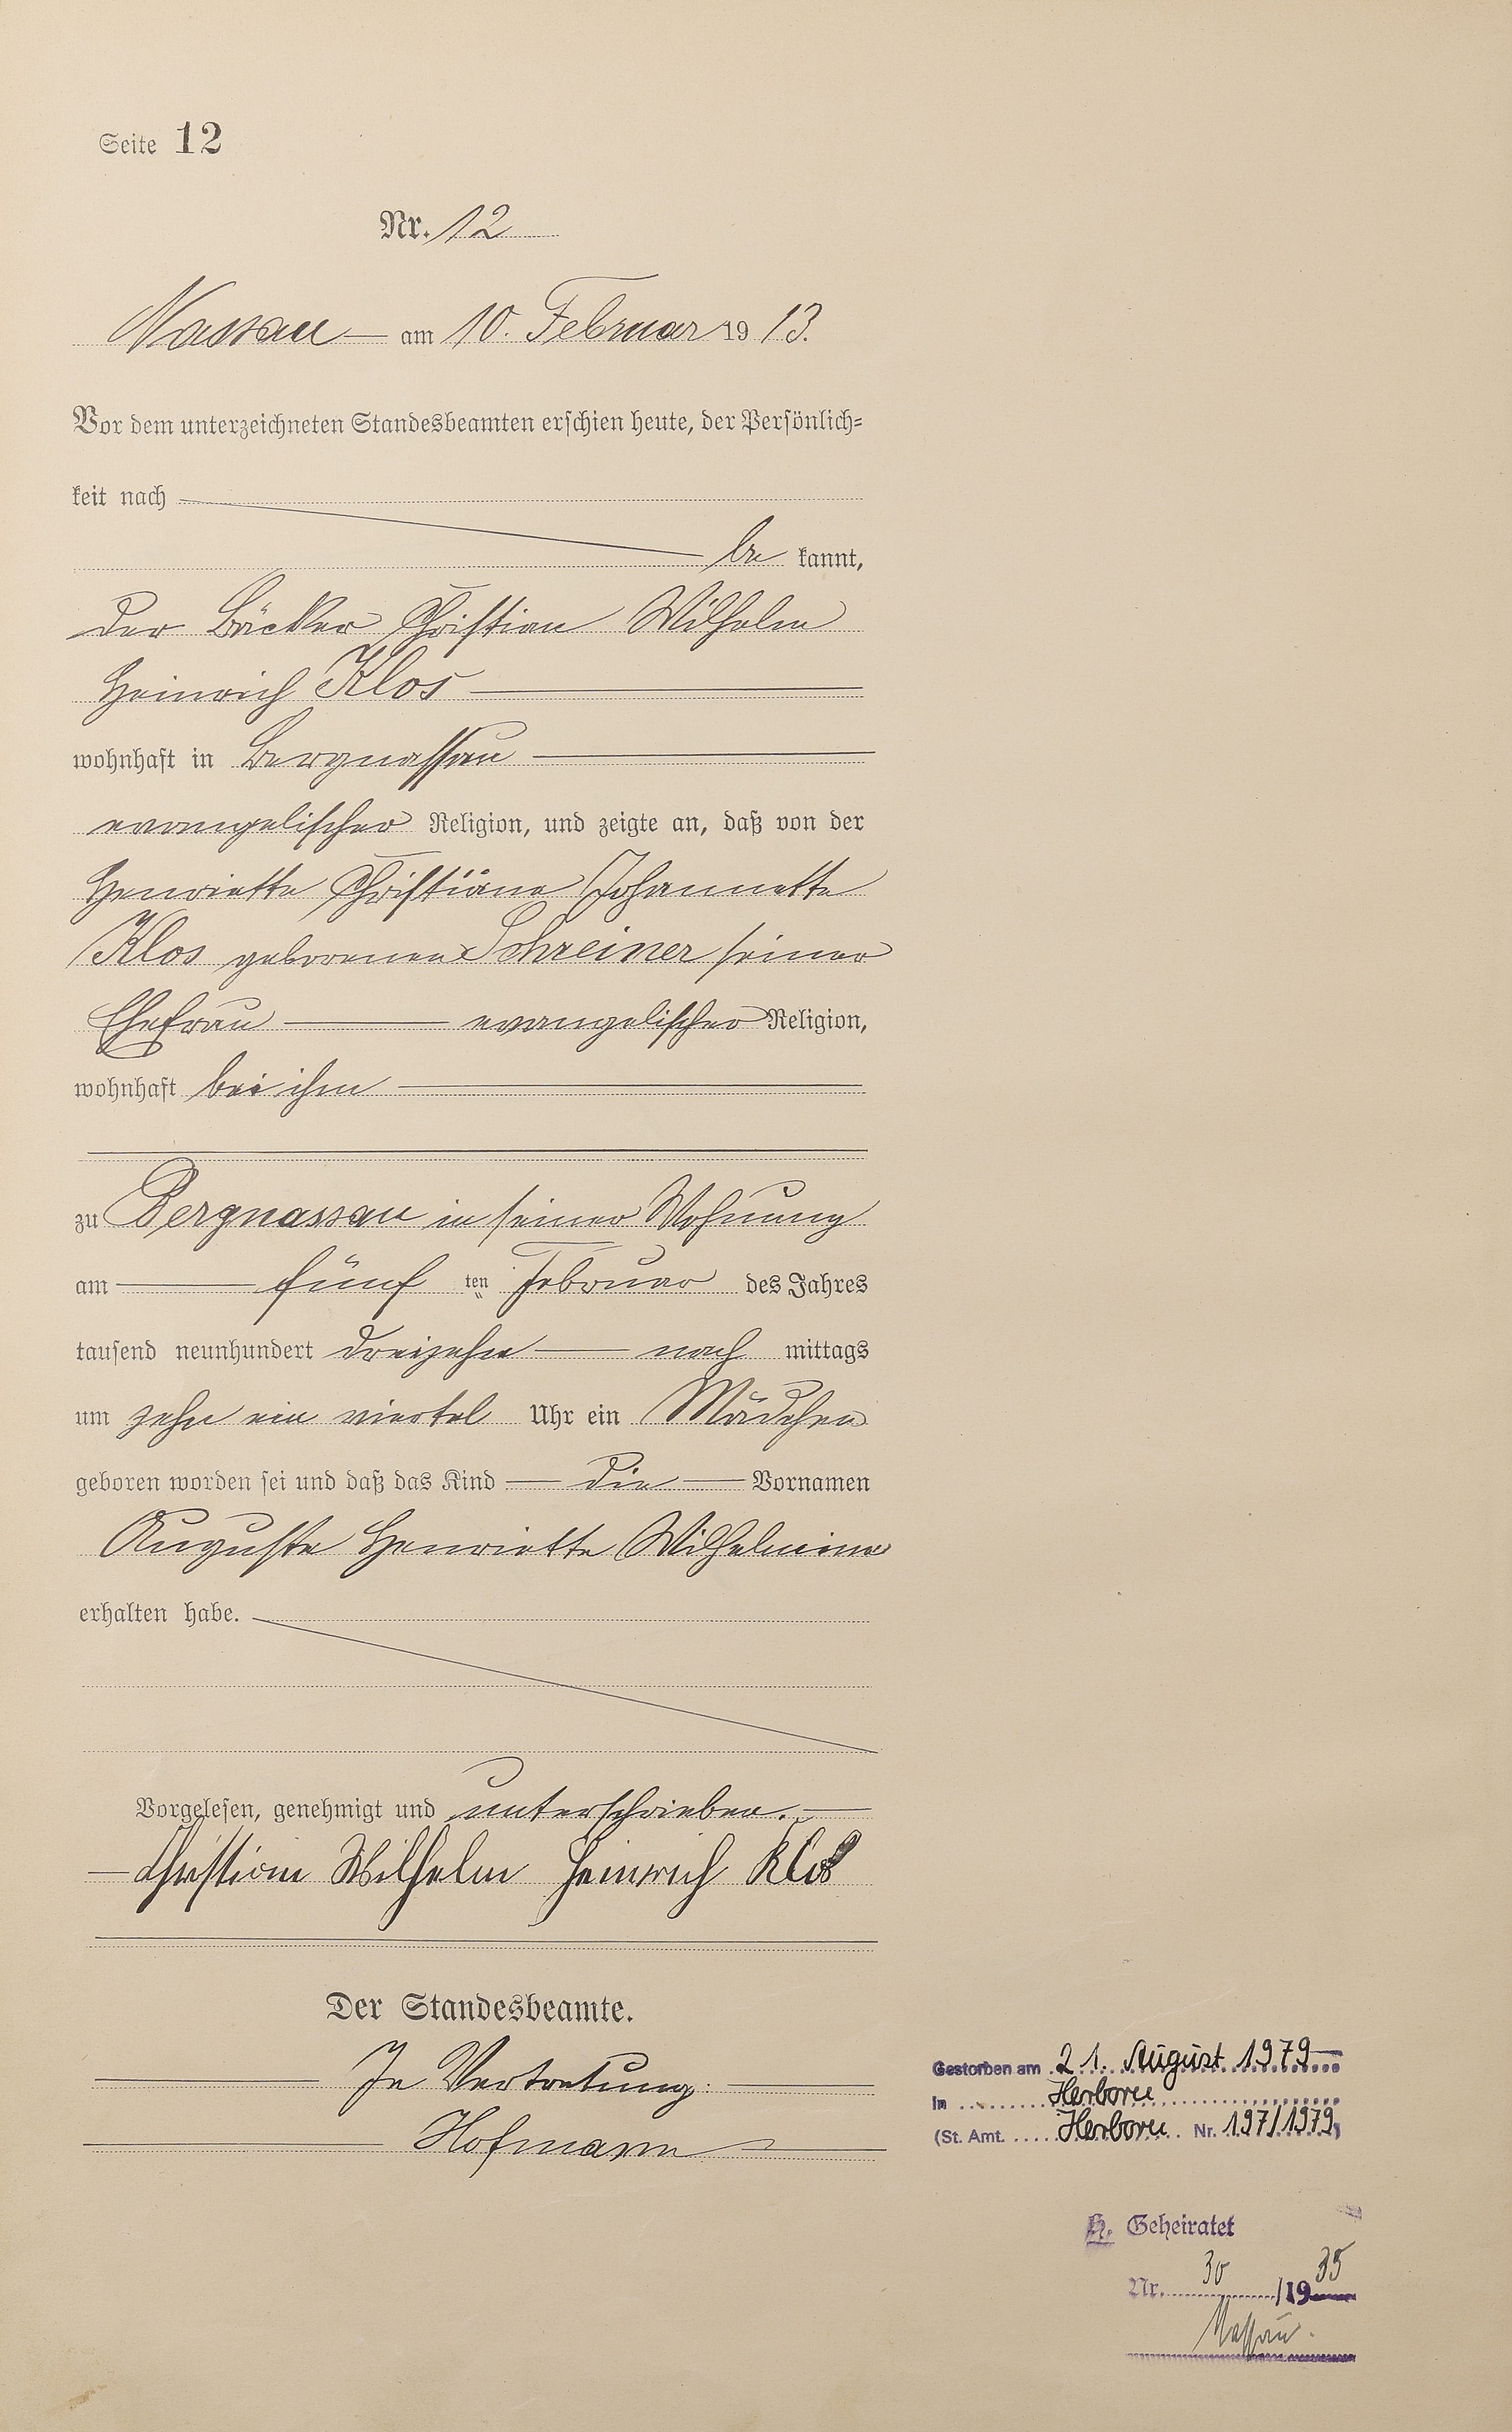 Seite 12
Nr. 12
Nassau am 10. Februar 1913.
Vor dem unterzeichneten Standesbeamten erschien heute, der Persönlich=
keit nach
be kannt,
der Bäcker Christian Wilhelm
Heinrich Klos
wohnhaft in Bergnassau
evangelischer Religion, und zeigte an, daß von der
Henriette Christiane Johannette
Klos geborenen Schreiner seiner
Ehefrau evangelischer Religion,
wohnhaft bei ihm
zu Bergnassau in seiner Wohnung
am fünf ten Februar des Jahres
tausend neunhundert dreizehn nach mittags
um zehn ein viertel Uhr ein Mädchen
geboren worden sei und daß das Kind die Vornamen
Auguste Henriette Wilhelmine
erhalten habe.
Vorgelesen, genehmigt und unterschrieben.
Christian Wilhelm Heinrich Klos
Der Standesbeamte.
In Vertretung.
Hofmann
Gestorben am 21. August 1979
in Herborn
(St. Amt. Herborn Nr. 197/1979)
K. Geheiratet
Nr. 30 /1935
Nassau.